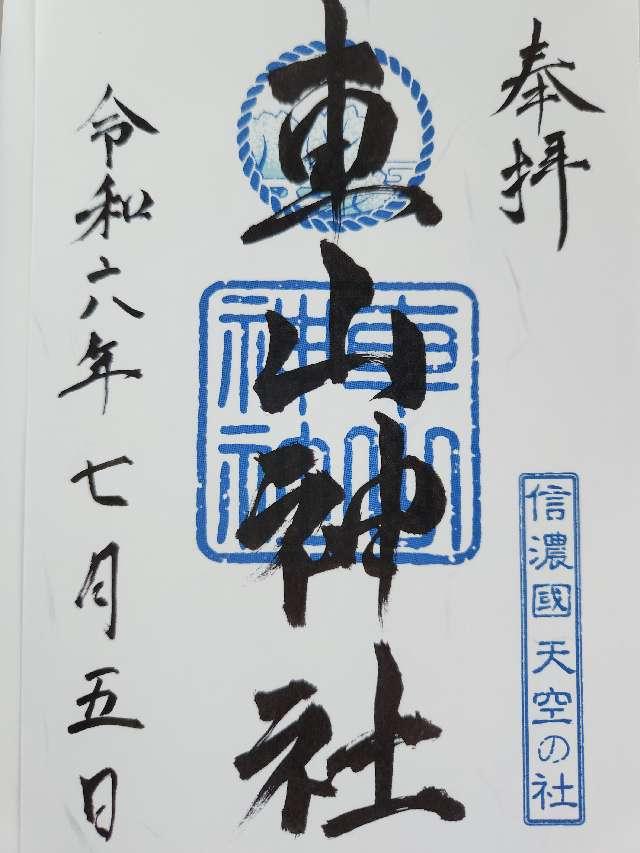 奉拝
信濃國 天空の社
東山神社
東山神社
令和六年七月五日